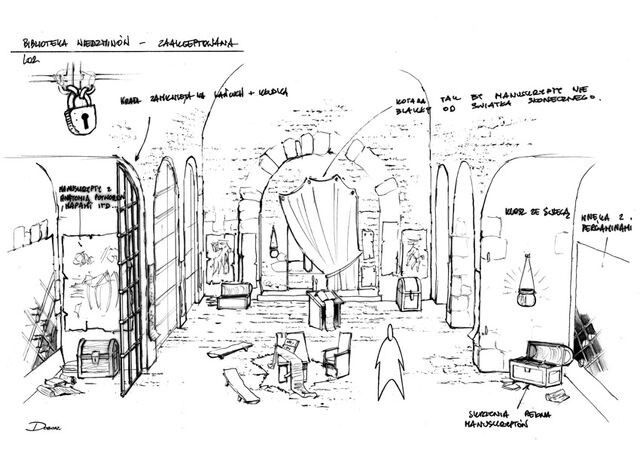 BIBLIOTEKA WIEDŹMINÓW - ZAAKCEPTOWANA
LOR
KRATA ZAMKNIĘTA NA ŁAŃCUCH + KŁÓDKA
KOTARA TAK BY MANUSKRYPTY NIE
BLAKŁY OD ŚWIATŁA SŁONECZNEGO.
MANUSKRYPTY Z
ANATOMIĄ POTWORÓW,
MAPAMI ITD...
KLOSZ ZE ŚWIECĄ
WNĘKA Z
PERGAMINAMI
SKRZYNIA PEŁNA
MANUSKRYPTÓW